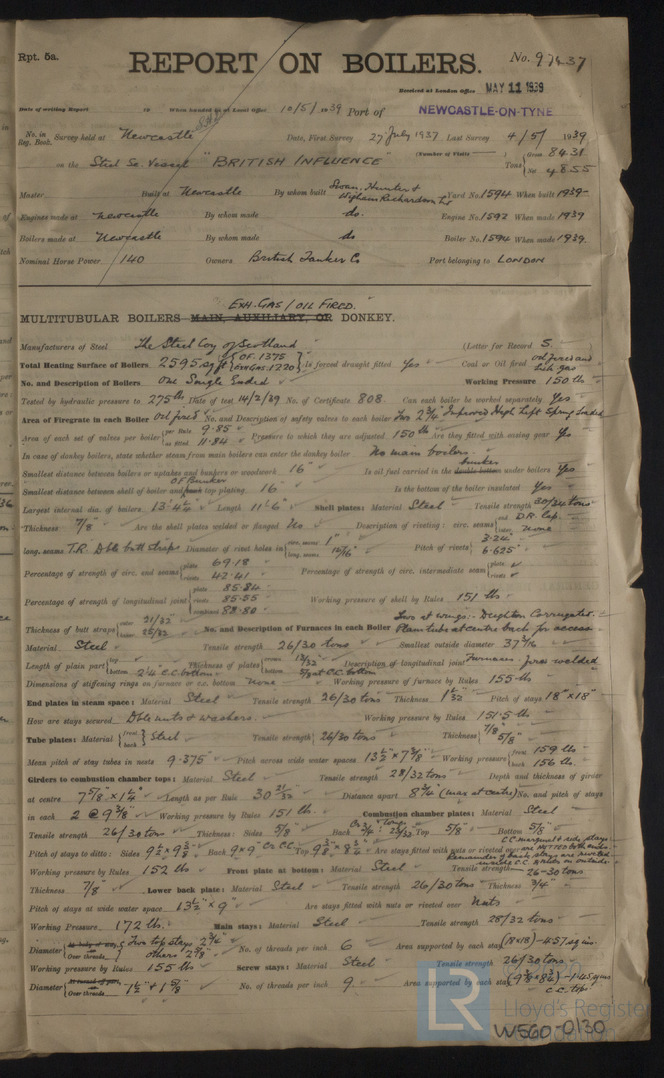 Rpt. 5a.
REPORT ON BOILERS.
No. 97437
Received at London Office MAY 11 1939
Date of writing Report 19 When handed in at Local Office 10/5/1939 Port of NEWCASTLE-ON-TYNE
No. in Reg. Book. Survey held at Newcastle Date, First Survey 27 July 1937 Last Survey 4/5/1939
on the Steel Sc. Vessel "BRITISH INFLUENCE" (Number of Visits ) Tons Gross 8431 Net 4855
Master Built at Newcastle By whom built Swan, Hunter & Wigham Richardson Ld Yard No. 1594 When built 1939
Engines made at Newcastle By whom made do. Engine No. 1592 When made 1939
Boilers made at Newcastle By whom made do Boiler No. 1594 When made 1939
Nominal Horse Power 140 Owners British Tanker Co Port belonging to LONDON
EXH. GAS/OIL FIRED.
MULTITUBULAR BOILERS MAIN, AUXILIARY, OR DONKEY.
Manufacturers of Steel The Steel Coy of Scotland (Letter for Record S.
Total Heating Surface of Boilers 2595 sq ft OF. 1375 EXH GAS. 1220 Is forced draught fitted Yes Coal or Oil fired oil fired and
No. and Description of Boilers One Single Ended Working Pressure 150 lbs
Tested by hydraulic pressure to 275 lbs Date of test 14/2/39 No. of Certificate 808 Can each boiler be worked separately Yes
Area of Firegrate in each Boiler Oil fired No. and Description of safety valves to each boiler Two 2 3/4" Improved High Lift Spring Loaded
Area of each set of valves per boiler per Rule 9.85 as fitted 11.84 Pressure to which they are adjusted 150 lb Are they fitted with easing gear Yes
In case of donkey boilers, state whether steam from main boilers can enter the donkey boiler No main boilers
Smallest distance between boilers or uptakes and bunkers or woodwork 16" Is oil fuel carried in the double bottom bunker under boilers Yes
Smallest distance between shell of boiler and tank top plating OF Bunker 16" Is the bottom of the boiler insulated Yes
Largest internal dia. of boilers 13'-4 1/4" Length 11'-6" Shell plates: Material Steel Tensile strength 30/34 tons
Thickness 7/8" Are the shell plates welded or flanged No Description of riveting: circ. seams end D.R. Lap. inter none
long. seams T.R. Dble butt straps Diameter of rivet holes in circ. seams 1" long. seams 15/16" Pitch of rivets 3.24" 6.625"
Percentage of strength of circ. end seams plate 69.18 rivets 42.41 Percentage of strength of circ. intermediate seam plate rivets
Percentage of strength of longitudinal joint plate 85.84 rivets 85.55 combined 88.80 Working pressure of shell by Rules 151 lbs
Thickness of butt straps outer 21/32 inner 25/32 No. and Description of Furnaces in each Boiler Two at wings:- Deighton Corrugated. Plain tube at centre back for access
Material Steel Tensile strength 26/30 tons Smallest outside diameter 37 5/16
Length of plain part top bottom 2'4" C.C. bottom Thickness of plates crown 13/32" bottom 5/8" at C.C. bottom Description of longitudinal joint Furnaces - fires welded
Dimensions of stiffening rings on furnace or c.c. bottom None Working pressure of furnace by Rules 155 lbs
End plates in steam space: Material Steel Tensile strength 26/30 tons Thickness 1 1/32" Pitch of stays 18" x 18"
How are stays secured Dble nuts & washers. Working pressure by Rules 151.5 lbs
Tube plates: Material front back Steel Tensile strength 26/30 tons Thickness 7/8" 5/8"
Mean pitch of stay tubes in nests 9.375" Pitch across wide water spaces 13 1/2" x 7 3/8" Working pressure front 159 lbs back 156 lbs
Girders to combustion chamber tops: Material Steel Tensile strength 28/32 tons Depth and thickness of girder
at centre 7 5/8" x 1 1/4" Length as per Rule 30 21/32 Distance apart 8 3/4" (max at center) No. and pitch of stays
in each 2 @ 9 3/8" Working pressure by Rules 151 lbs. Combustion chamber plates: Material Steel
Tensile strength 26/30 tons Thickness: Sides 5/8" Back 23/32 Top 5/8" Bottom 5/8"
Pitch of stays to ditto: Sides 9 1/2" x 9 3/8" Back 9" x 9" Top 9 3/8" x 8 3/4" Are stays fitted with nuts or riveted over
Working pressure by Rules 152 lbs Front plate at bottom: Material Steel Tensile strength 26-30 tons
Thickness 7/8" Lower back plate: Material Steel Tensile strength 26/30 tons Thickness 3/4"
Pitch of stays at wide water space 13 1/2" x 9" Are stays fitted with nuts or riveted over Nuts
Working Pressure 172 lbs. Main stays: Material Steel Tensile strength 28/32 tons
Diameter At body of stay, or Over threads Two top stays 2 3/4" others 2 7/8" No. of threads per inch 6 Area supported by each stay (18 x 18) - 4.57 sq ins.
Working pressure by Rules 155 lbs Screw stays: Material Steel Tensile strength 26/30 tons
Diameter At turned off part, or Over threads 1 1/2" & 1 5/8" No. of threads per inch 9 Area supported by each stay (9 3/8 x 8 3/4) - 1.45 sq ins C.C. top
LR
Lloyd's Register
Foundation
W560-0130